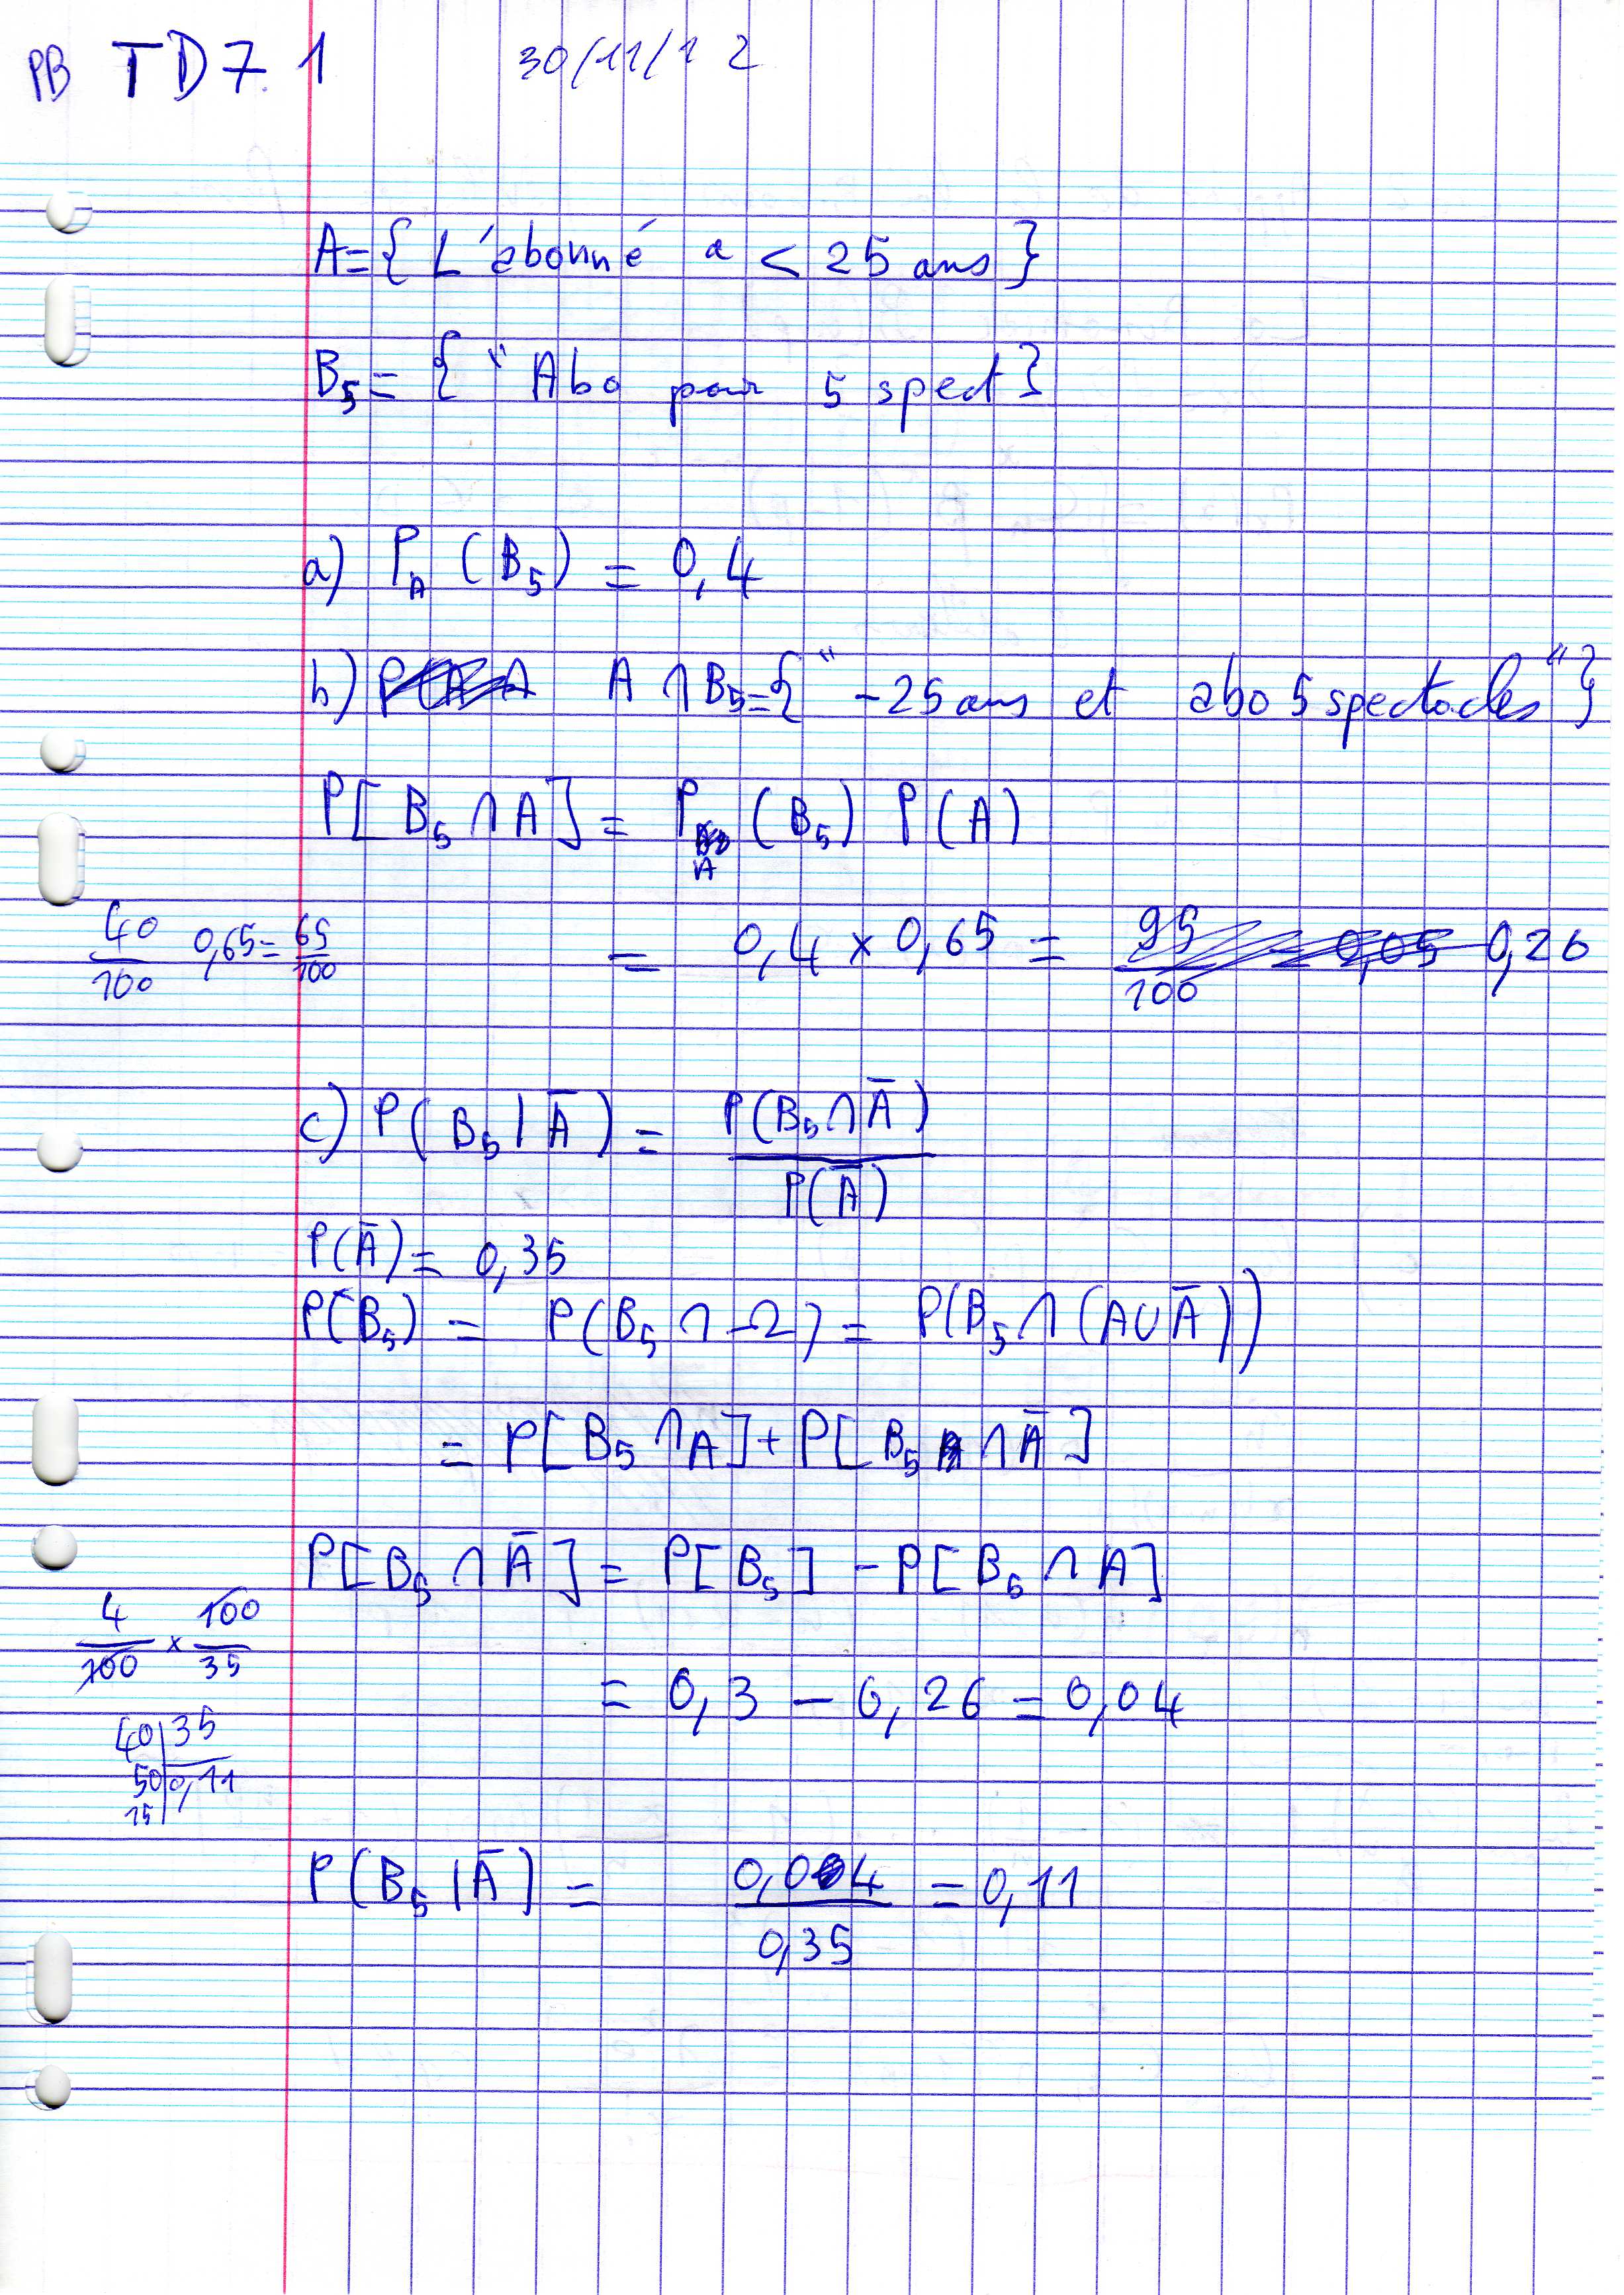 PB TD7.1 30/11/12
A={ L'abonné a < 25 ans }
B₅= { " Abo pour 5 spect }
a) P_A (B₅) = 0,4
b) A ∩ B₅={ " -25 ans et abo 5 spectacles " }
P[ B₅ ∩ A ] = P_A (B₅) P(A)
40/100 0,65= 65/100
= 0,4 × 0,65 = 95/100 = 0,05 0,26
c) P( B₅ | Ā ) = P(B₅ ∩ Ā) / P(Ā)
P(Ā) = 0,35
P(B₅) = P( B₅ ∩ Ω ) = P(B₅ ∩ (A∪Ā))
= P[ B₅ ∩ A ] + P[ B₅ ∩ Ā ]
P[ B₅ ∩ Ā ] = P[ B₅ ] - P[ B₅ ∩ A ]
4/100 × 100/35
= 0,3 - 0,26 = 0,04
40 | 35
50 | 0,11
15
P( B₅ | Ā ) = 0,04 / 0,35 = 0,11